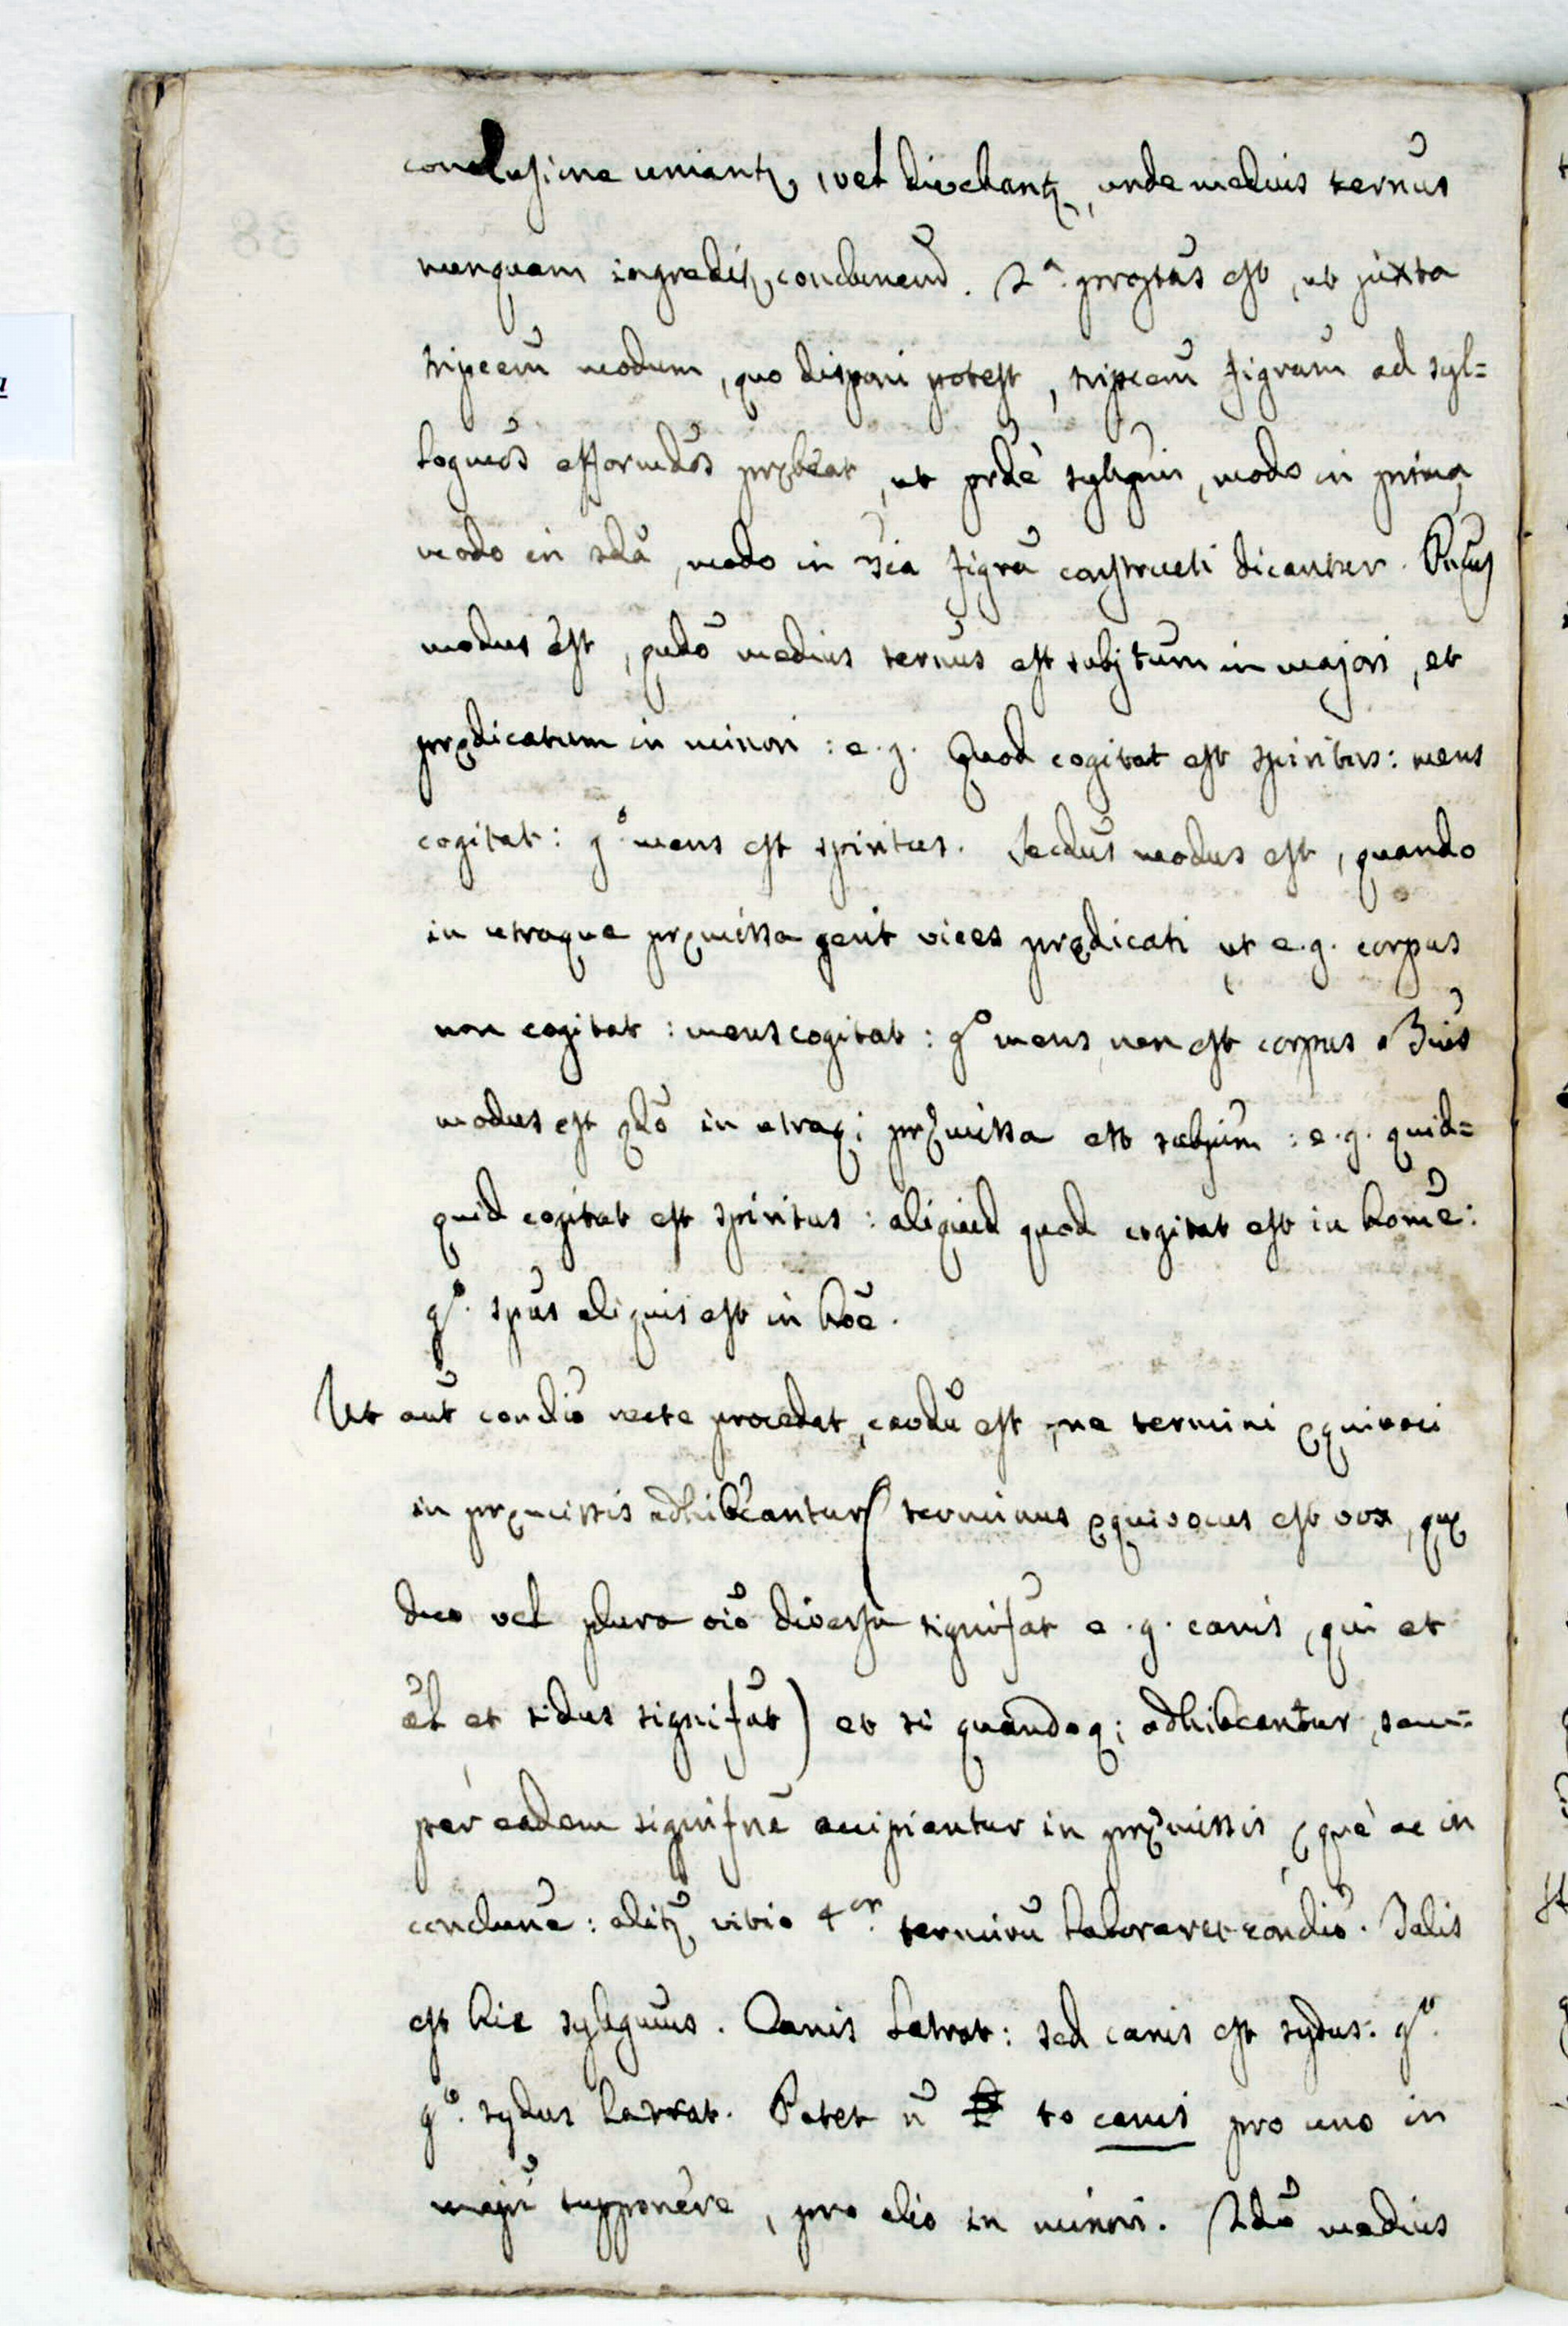 conclusione uniantꝫ, vel divelantꝫ, unde medius ternũs
nunquam ingreditꝫ conclunem̃. 2ᵃ. prõptas est, ut juxta
triplicem̃ modum, quo disponi potest, triplicem̃ figram̃ ad syl=
logmõs efformdõs præbeat, ut prdẽ sylgmi, modo in prima
modo in sdã, modo in 3ia figrã constructi dicantur.
modus est, qudõ medius ternũs est subjtũm in majori, et
prædicatum in minori: e. g. Quod cogitat est spiritus: mens
cogitat: gᵒ mens est spiritus. Secdũs modus est, quando
in utraque præmissa gerit vices prædicati ut e. g. corpus
non cogitat: mens cogitat: gᵒ mens non est corpus. 3iũs
modus est qdõ in utraq; præmissa est subjũm: e. g. quid=
quid cogitat est spiritus: aliquid quod cogitat est in homĩe:
gᵒ. spũs aliquis est in hoẽ.
Ut aũt conclũo recte procedat, cavdũ est, ne termini æquivoci
in præmissis adhibeantur (terminus æquivocus est vox, quæ
duo vel plura oĩo diversa signifãt e. g. canis, qui et
ãl et sidus signifãt) et si quandoq; adhibeantur, sem=
per eadem signifnẽ accipiantur in præmissis, æquè ac in
conclunẽ: alitꝫ vitio 4ᵒʳ. terminũ laboraret conclũo. Talis
est hic sylgmus. Canis latrat: sed canis est sydus: gᵒ.
gᵒ. sydus latrat. Patet ñ to canis pro uno in
majri supponere, pro alio in minori. 2dõ medius